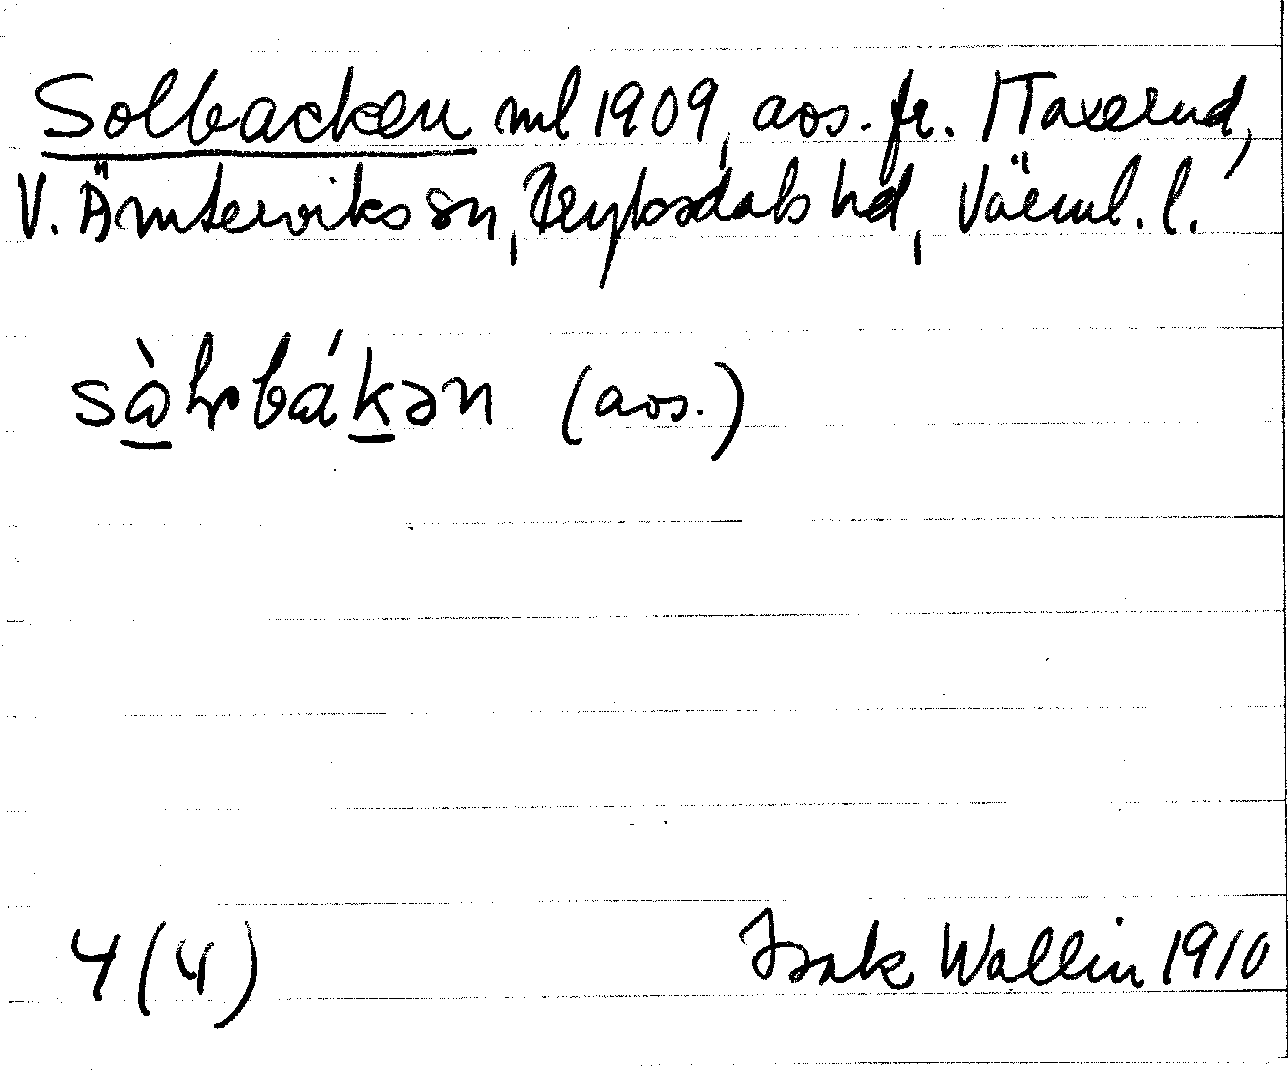 Solbacken ml 1909, aos. fr. 1 Taxerud,
V. Ämterviks sn, Fryksdals hd, Värml. l.
(aos.)
4 (4) Isak Wallin 1910